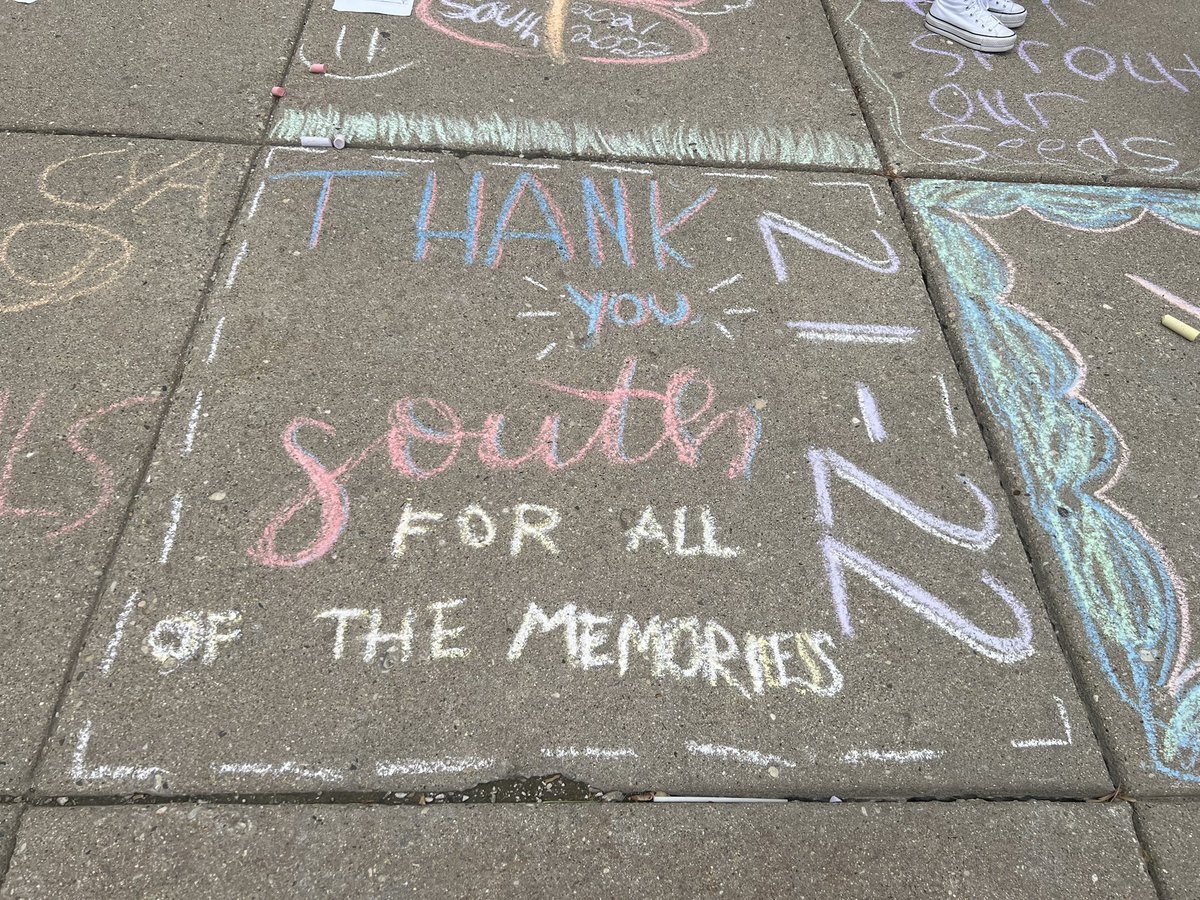 South 2021
2022
our
Seeds
THANK
YOU
South
FOR ALL
OF THE MEMORIES
21-22